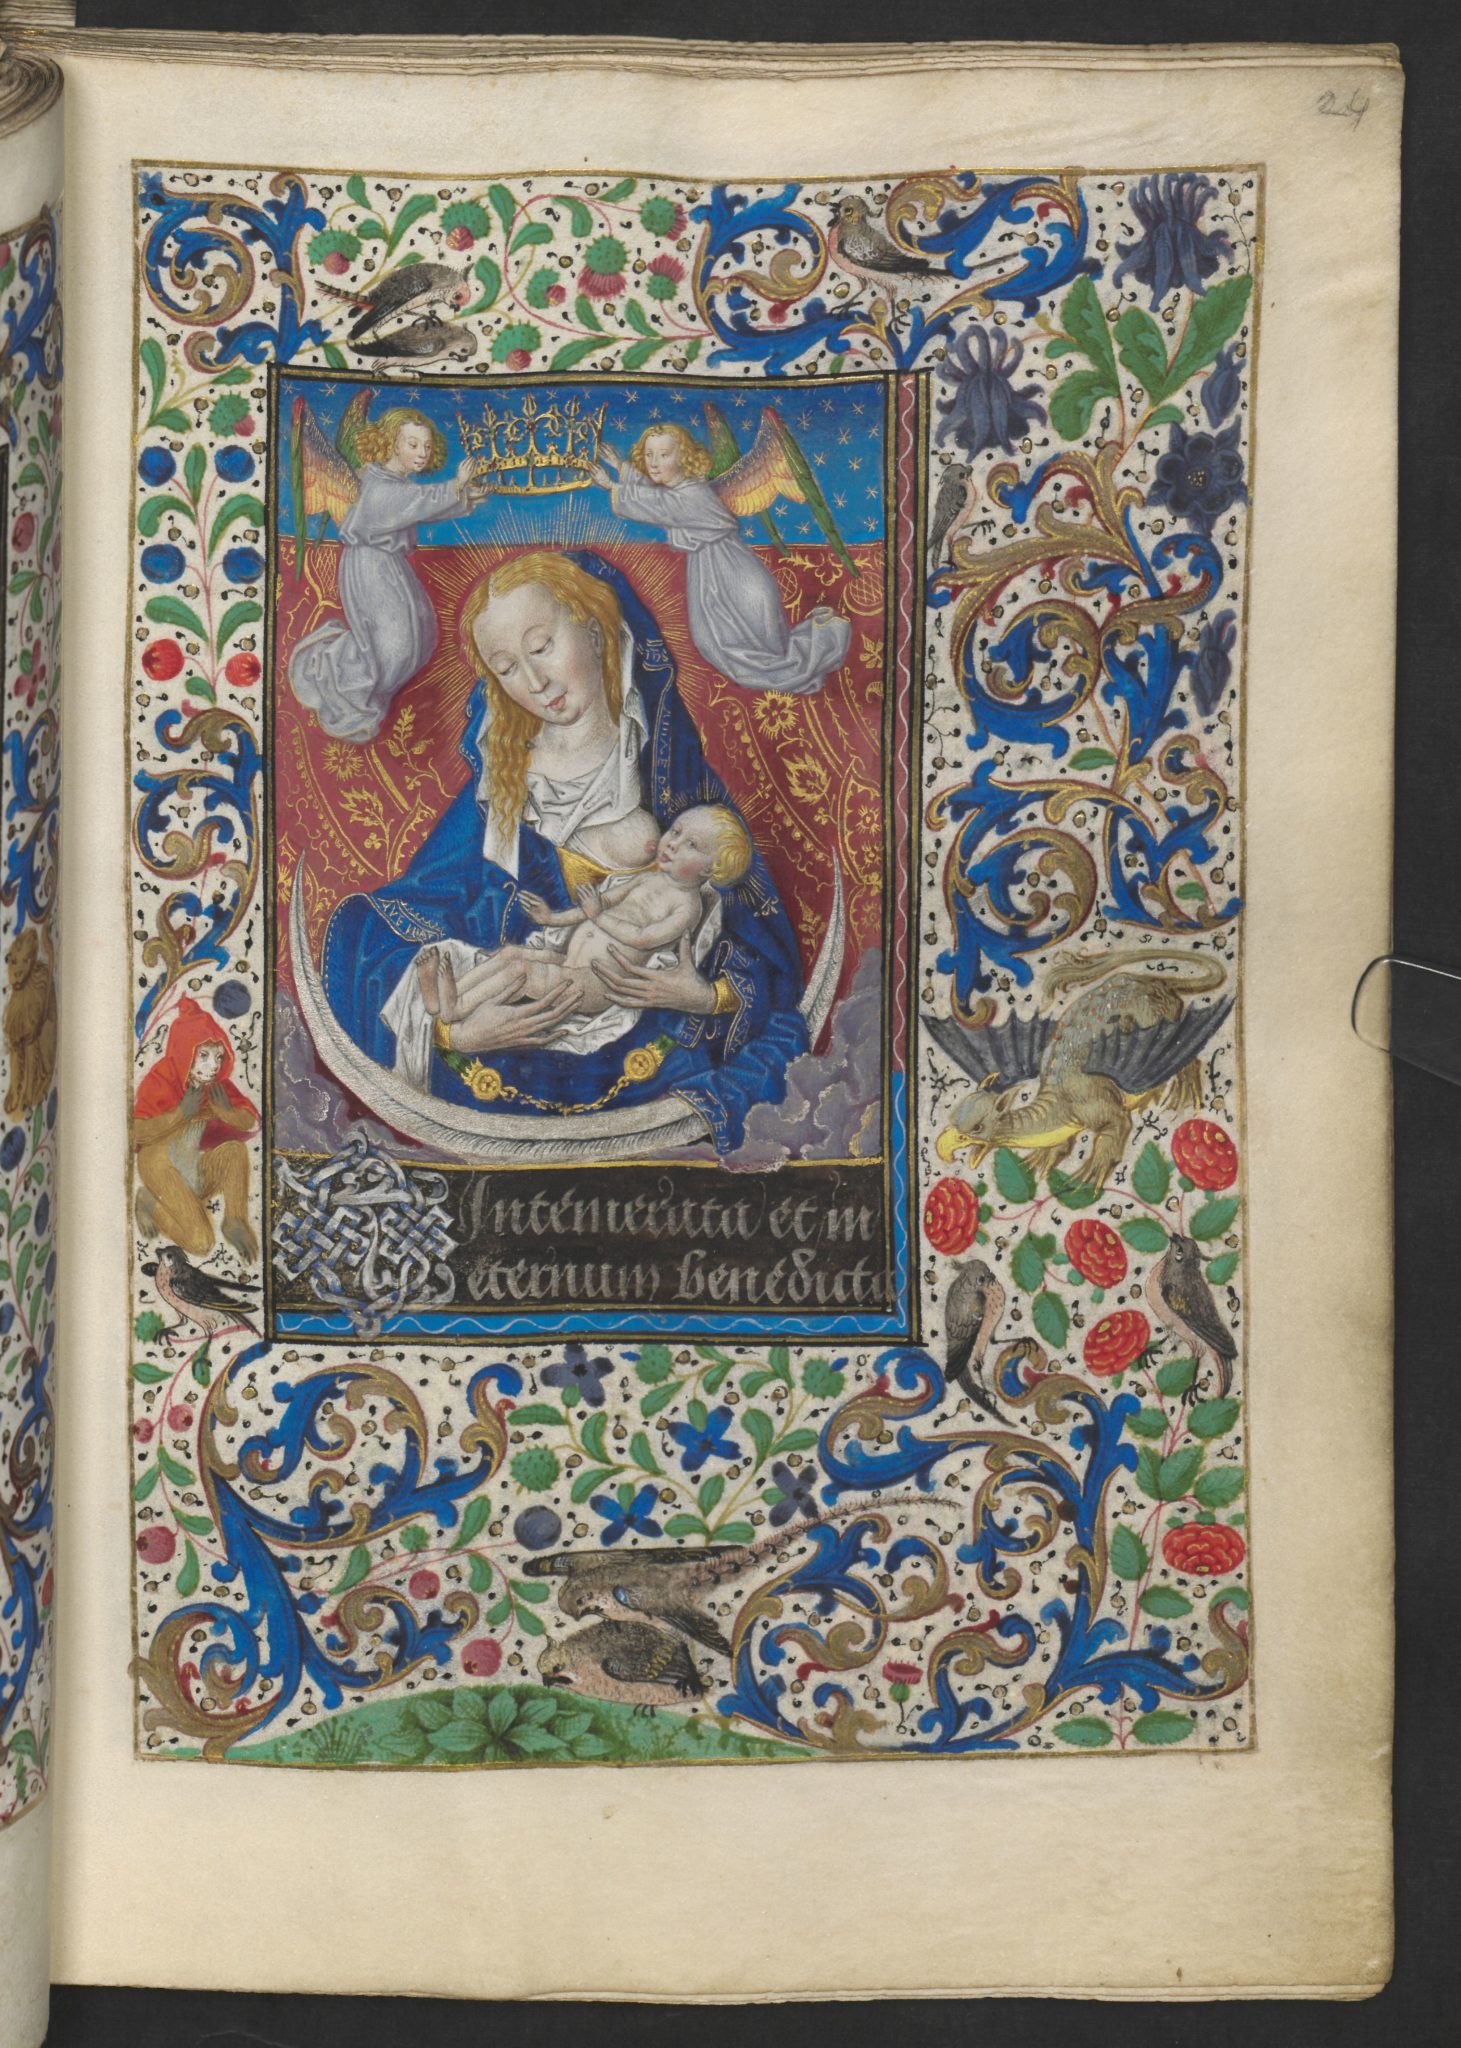 24
O Intemerata et in
eternum benedicta